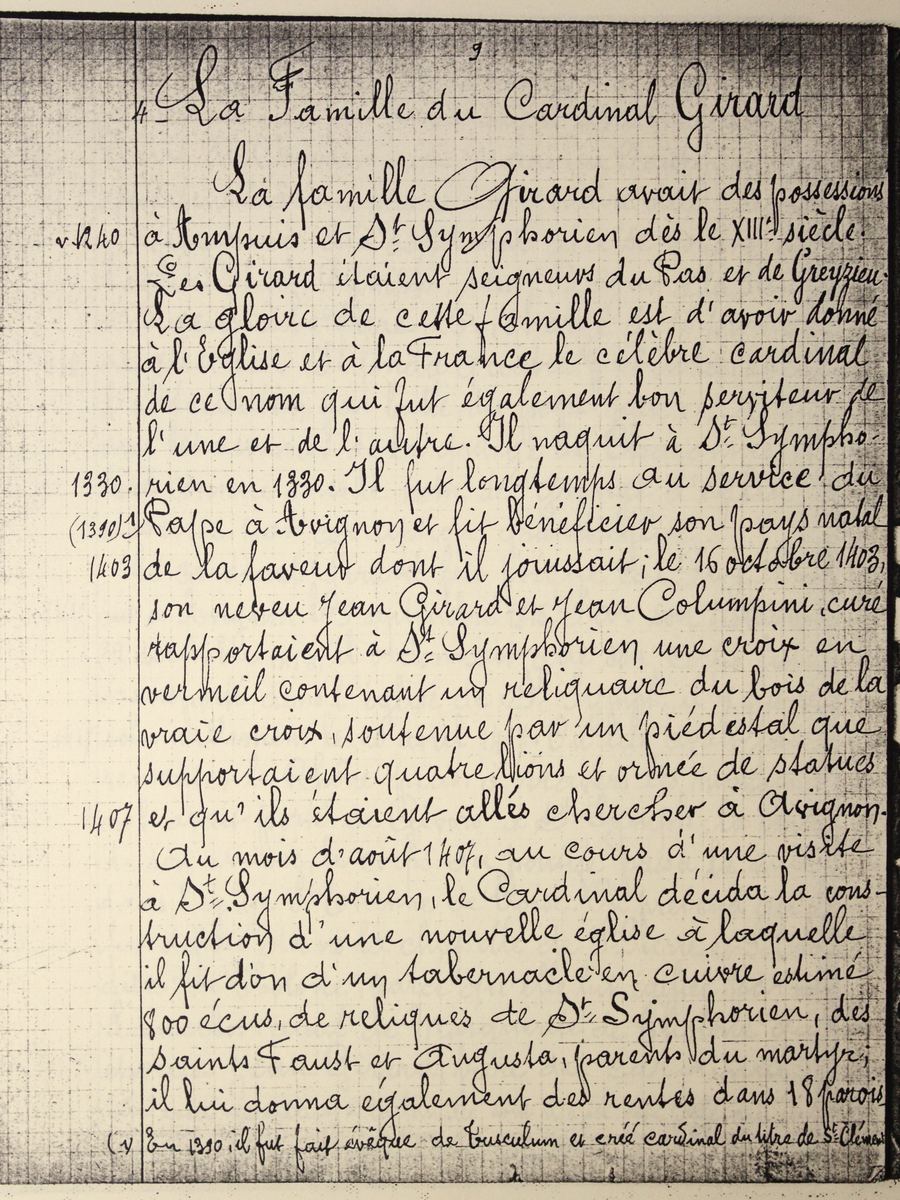 9
4- La Famille du Cardinal Girard
La famille Girard avait des possessions
v 1240 à Ampuis et St Symphorien dès le XIIIe siècle.
Les Girard étaient seigneurs du Pas et de Greyzieu.
La gloire de cette famille est d'avoir donné
à l'Eglise et à la France le célèbre cardinal
de ce nom qui fut également bon serviteur de
l'une et de l'autre. Il naquit à St Sympho-
1330. rien en 1330. Il fut longtemps au service du
(1390) 1) Pape à Avignon et fit bénéficier son pays natal
1403 de la faveur dont il jouissait; le 16 octobre 1403,
son neveu Jean Girard et Jean Columpini, curé
rapportaient à St Symphorien une croix en
vermeil contenant un reliquaire du bois de la
vraie croix, soutenue par un piédestal que
supportaient quatre lions et ornée de statues
1407 et qu'ils étaient allés chercher à Avignon.
Au mois d'août 1407, au cours d'une visite
à St Symphorien, le Cardinal décida la cons-
truction d'une nouvelle église à laquelle
il fit don d'un tabernacle en cuivre estimé
800 écus, de reliques de St Symphorien, des
saints Faust et Augusta, parents du martyr;
il lui donna également des rentes dans 18 parois
(v En 1390, il fut fait évêque de Tusculum et créé cardinal du titre de St Clément